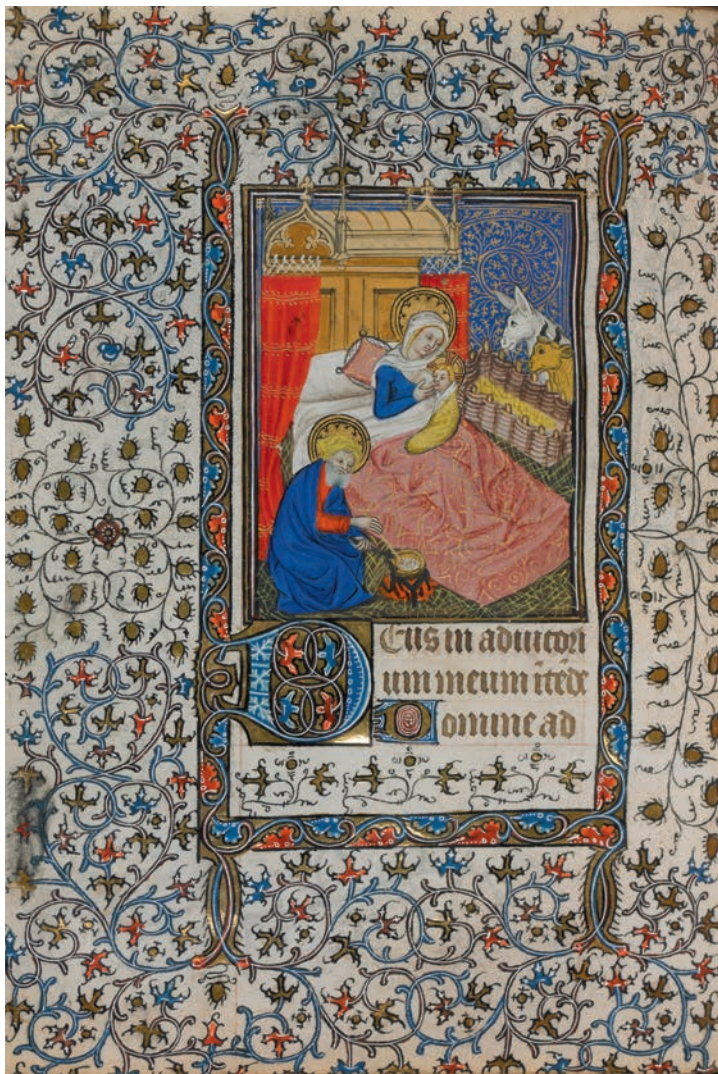 Deus in adiutori
um meum inte͂de
Domine ad